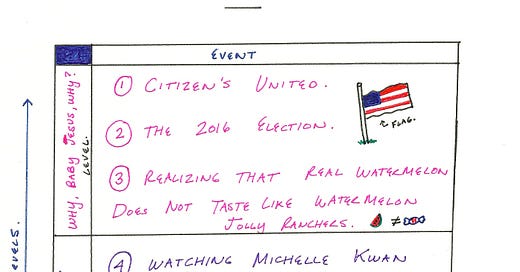 EVENT
WHY, BABY JESUS, WHY?
LEVEL.
① CITIZEN'S UNITED.
② THE 2016 ELECTION.
FLAG.
③ REALIZING THAT REAL WATERMELON
DOES NOT TASTE LIKE WATERMELON
JOLLY RANCHERS. ≠
④ WATCHING MICHELLE KWAN